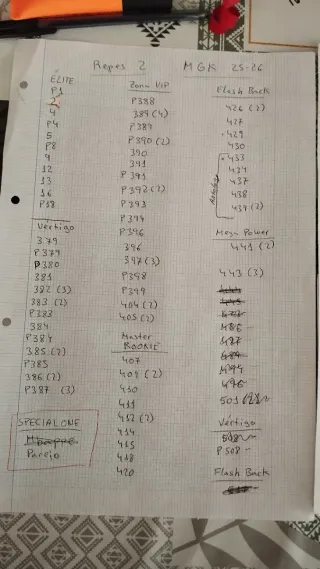 Repes 2 MGK 25-26
ÉLITE
P1
2
4
P4
5
P8
9
12
13
16
P18
Vértigo
379
P379
P380
381
382 (3)
383 (2)
P383
384
P384
385 (2)
P385
386 (2)
P387 (3)
SPECIAL ONE
Mbappe
Parejo
Zona VIP
P388
389 (4)
P389
P390 (2)
390
391
P391
P392 (2)
P393
P394
P396
396
397 (3)
P398
P399
404 (2)
405 (2)
Master
ROOKIE
407
409 (2)
410
411
412 (2)
414
415
418
420
Flash Back
426 (2)
427
429
430
433
434
437
438
439 (2)
Mega Power
441 (2)
443 (3)
486
487
489
494
496
501
Vértigo
508
P508
Flash Back